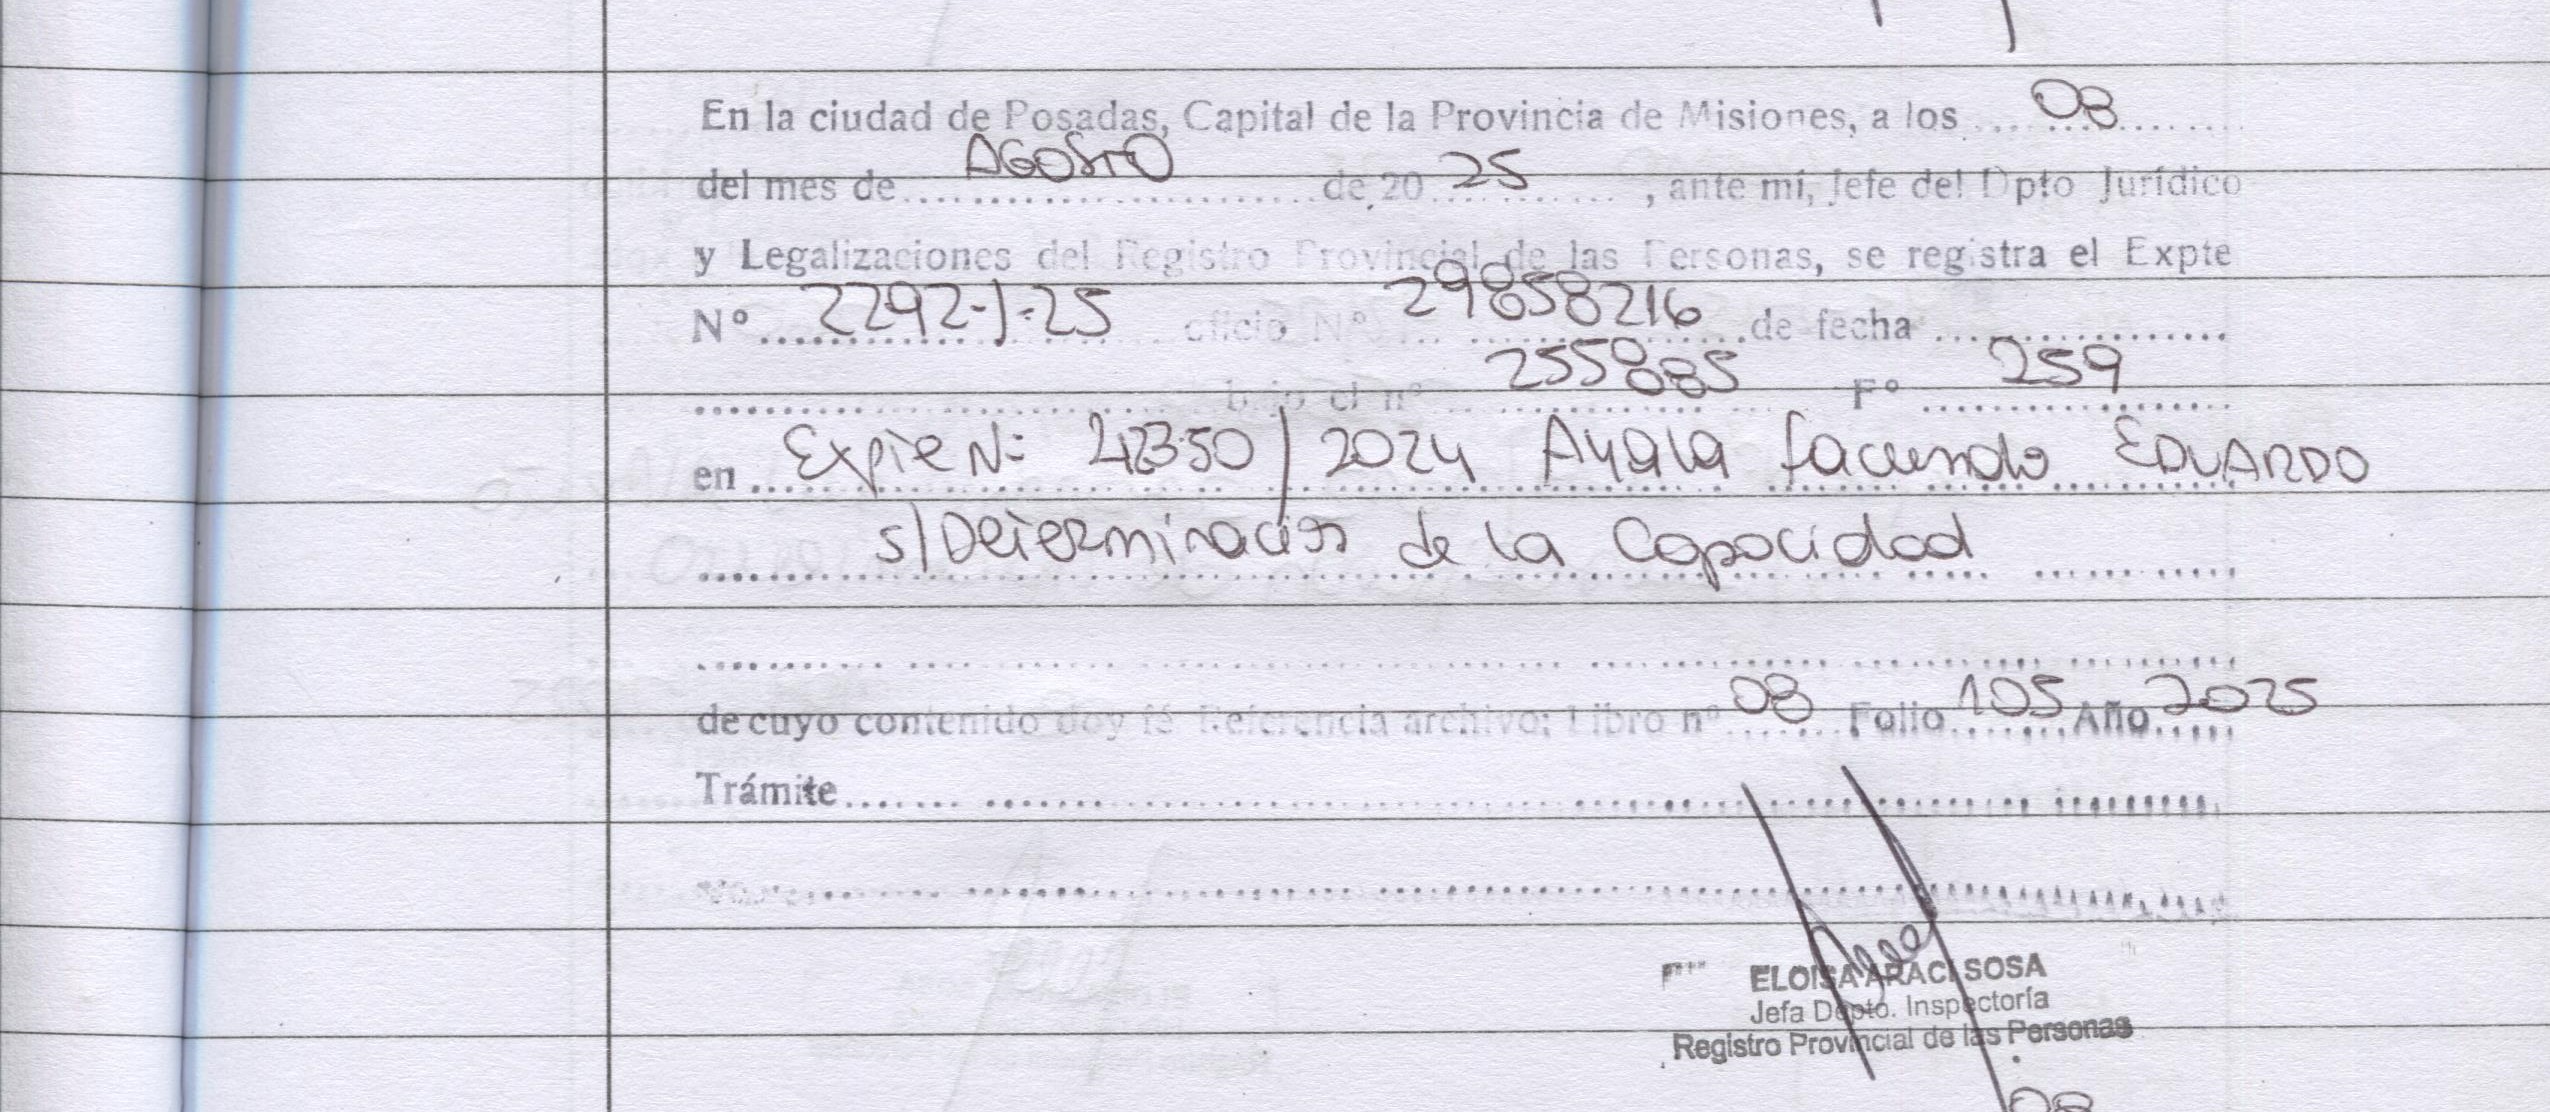 En la ciudad de Posadas, Capital de la Provincia de Misiones, a los 08
del mes de AGOSTO de 20 25, ante mí, Jefe del Dpto Jurídico
y Legalizaciones del Registro Provincial de las Personas, se registra el Expte
Nº 2292-J-25 oficio Nº 29858216 de fecha
bajo el nº 255885 Fº 259
en Expte N: 42350/2024 Ayala facundo EDUARDO
s/Determinación de la Capacidad
de cuyo contenido doy fé Referencia archivo: Libro nº 08 Folio 105 Año 2025
Trámite
ELOISA ARACI SOSA
Jefa Depto. Inspectoría
Registro Provincial de las Personas
08